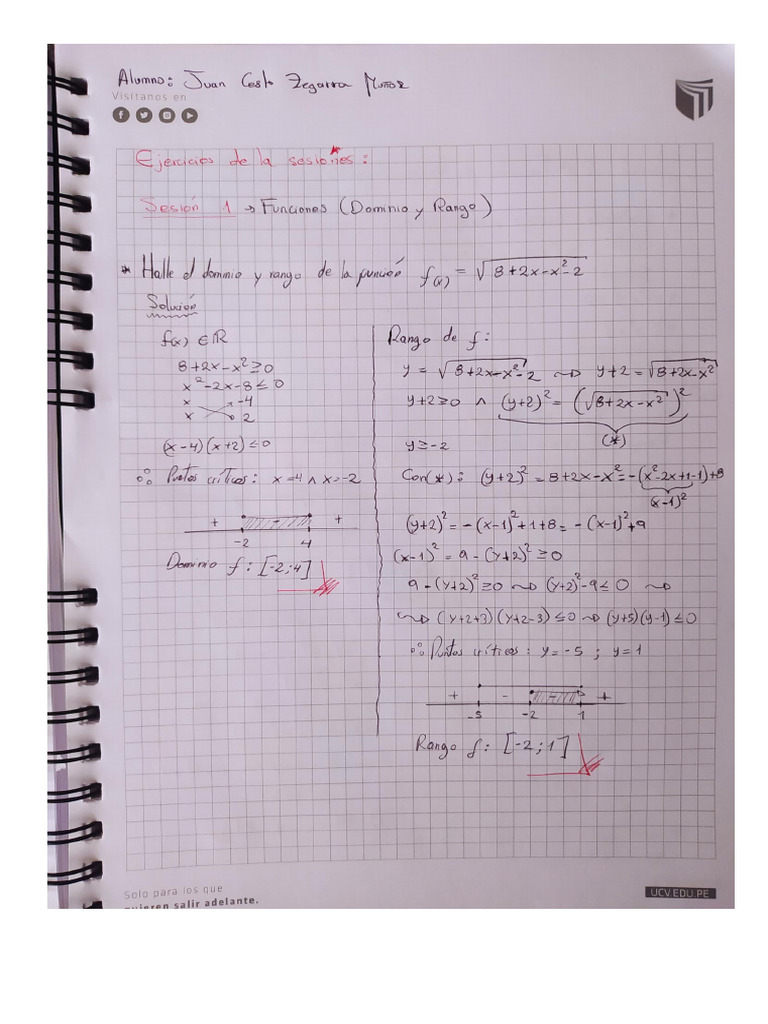 Alumno: Juan Zegarra
Visítanos en
Ejercicios de la sesiones:
Sesión 1 → Funciones (Dominio y Rango)
* Halle el dominio y rango de la función f(x) = √8+2x-x²-2
Solución
f(x) ∈ ℝ
8+2x-x² ≥ 0
x²-2x-8 ≤ 0
x -4
x 2
(x-4)(x+2) ≤ 0
∴ Puntos críticos: x=4 ∧ x=-2
+ - +
-2 4
Dominio f: [-2;4]
Rango de f:
y = √8+2x-x²-2 ⇝ y+2 = √8+2x-x²
y+2≥0 ∧ (y+2)² = (√8+2x-x²)²
(*)
y≥-2
Con(*): (y+2)² = 8+2x-x² = -(x²-2x+1-1)+8
(x-1)²
(y+2)² = -(x-1)²+1+8 = -(x-1)²+9
(x-1)² = 9-(y+2)² ≥ 0
9-(y+2)² ≥ 0 ⇝ (y+2)²-9 ≤ 0 ⇝
⇝ (y+2+3)(y+2-3) ≤ 0 ⇝ (y+5)(y-1) ≤ 0
∴ Puntos críticos: y=-5 ; y=1
+ - - +
-5 -2 1
Rango f: [-2;1]
Solo para los que
quieren salir adelante.
UCV.EDU.PE